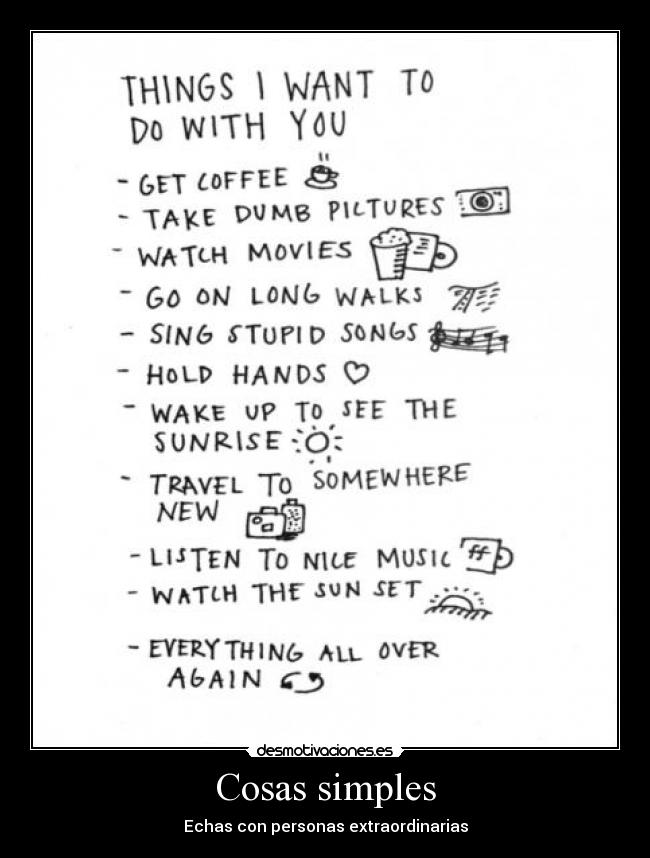 THINGS I WANT TO
DO WITH YOU
- GET COFFEE
- TAKE DUMB PICTURES
- WATCH MOVIES
- GO ON LONG WALKS
- SING STUPID SONGS
- HOLD HANDS
- WAKE UP TO SEE THE
SUNRISE
- TRAVEL TO SOMEWHERE
NEW
- LISTEN TO NICE MUSIC
ff
- WATCH THE SUN SET
- EVERYTHING ALL OVER
AGAIN
desmotivaciones.es
Cosas simples
Echas con personas extraordinarias